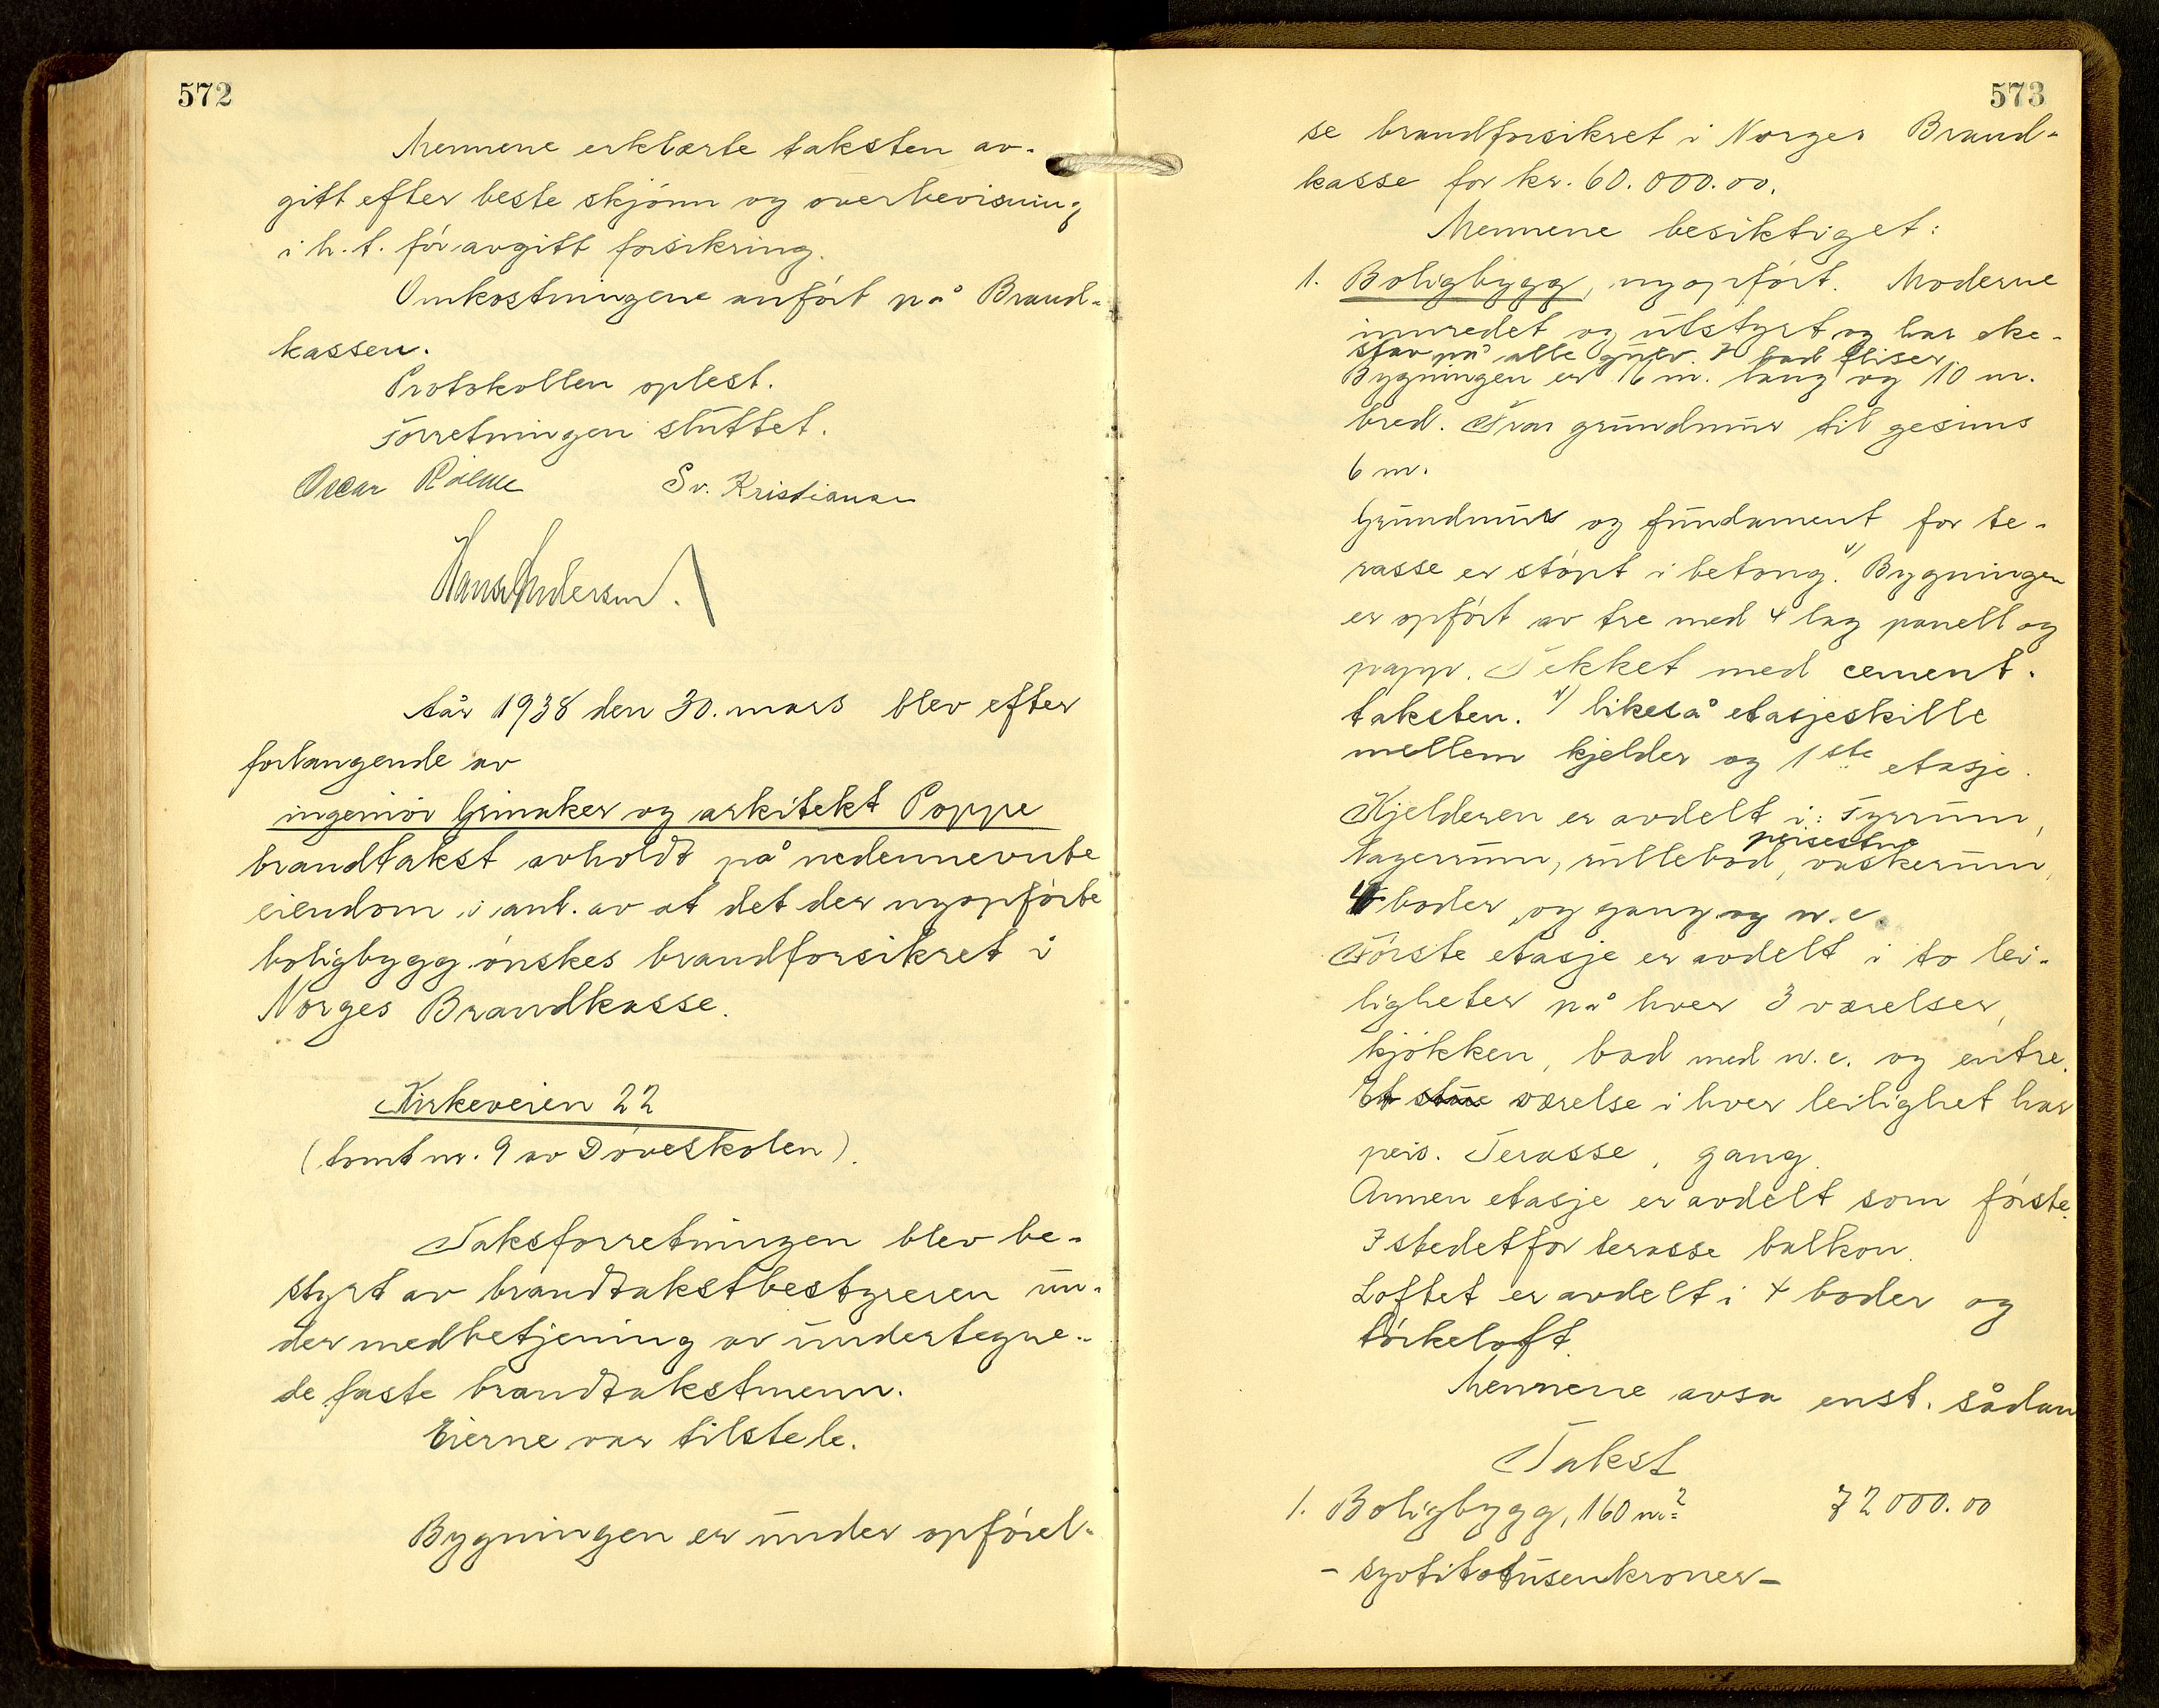 572
Mennene erklærte taksten av-
gitt efter beste skjønn og overbevisning
i h.t. før avgitt forsikring.
Omkostningene anført på Brand-
kassen.
Protokollen oplest.
Forretningen sluttet.
Oscar Sv. Kristiansen
Hans Andersen.
År 1938 den 30. mars blev efter
forlangende av
ingeniør Grinaker og arkitekt Poppe
brandtakst avholdt på nedennevnte
eiendom i anl. av at det der nyopførte
boligbygg ønskes brandforsikret i
Norges Brandkasse.
Kirkeveien 22
(tomt nr. 9 av Døveskolen).
Taksforretningen blev be-
styrt av brandtakstbestyreren un-
der medbetjening av undertegne-
de faste brandtakstmenn.
Eierne var tilstede.
Bygningen er under opførel-
573
se brandforsikret i Norges Brand-
kasse for kr. 60.000.00.
Mennene besiktiget:
1. Boligbygg, nyopført. Moderne
innredet og utstyrt og har eke-
stav på alle gulv. I bad fliser.
Bygningen er 16 m. lang og 10 m.
bred. Fra grundmur til gesims
6 m.
Grundmur og fundament for te-
rasse er støpt i betong. v) Bygningen
er opført av tre med 4 lag panell og
papp. Tekket med cement-
taksten. v) likeså etasjeskille
mellem kjelder og 1ste etasje.
Kjelderen er avdelt i: Fyrrum,
lagerrum, rullebod, peisestue vaskerum,
4 boder, og gang og w.c.
Første etasje er avdelt i to lei-
ligheter på hver 3 værelser,
kjøkken, bad med w.c. og entre.
Et stue værelse i hver leilighet har
peis. Terasse, gang.
Annen etasje er avdelt som første.
Istedetfor terasse balkon.
Loftet er avdelt i 4 boder og
tørkeloft.
Mennene avsa enst. sådan
Takst
1. Boligbygg, 160 m² 72000.00
- syttitotusenkroner -